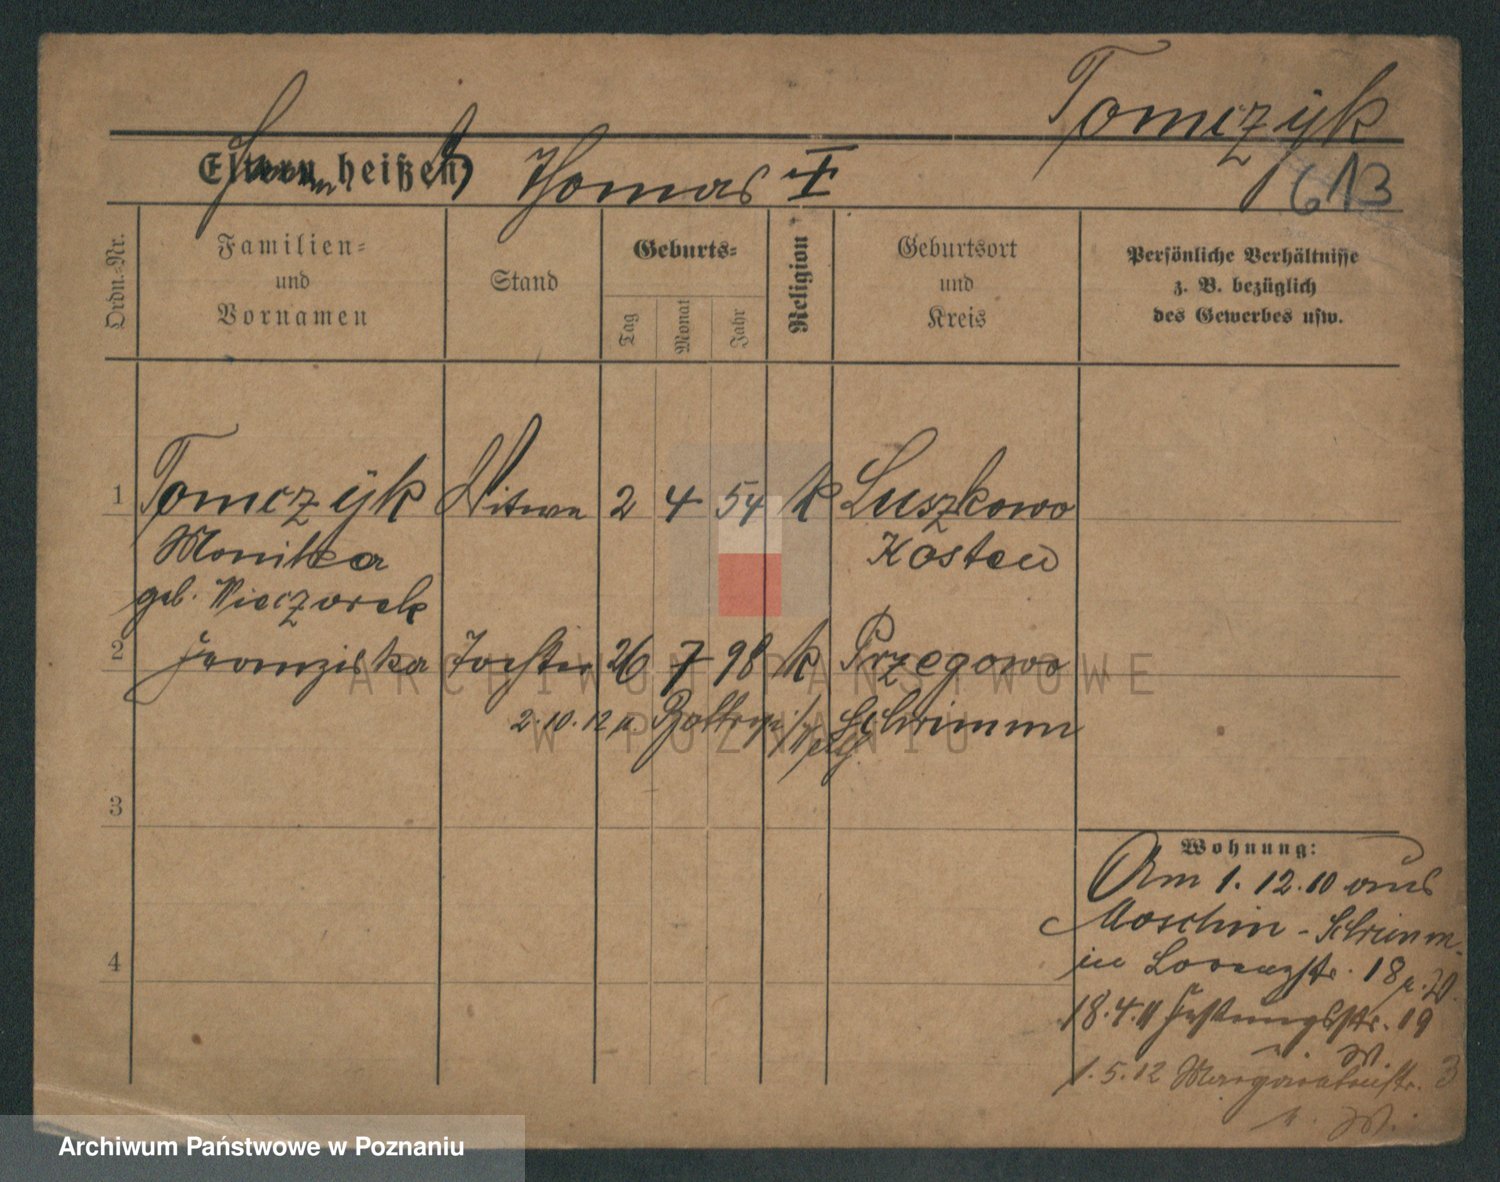 Tomczÿk
Eltern heißen
Thomas
613
Ordn.-Nr.
Familien-
und
Vornamen
Stand
Geburts-
Tag
Monat
Jahr
Religion
Geburtsort
und
Kreis
Persönliche Verhältnisse
z. B. bezüglich
des Gewerbes usw.
1 Tomczÿk Witwe 2 4 54 k Luszkowo
Monika Kosten
geb. Wieczorek
2 Franziska Tochter 26 7 98 k Przegowo
2.10.12 n. Schrimm
3
Wohnung:
Am 1. 12. 10 aus
Moschin - Schrimm
4
in Lorenzstr. 18
18.4.11 Festungsstr. 19
1.5.12 Margaretenstr. 3
ARCHIWUM PAŃSTWOWE
W POZNANIU
Archiwum Państwowe w Poznaniu